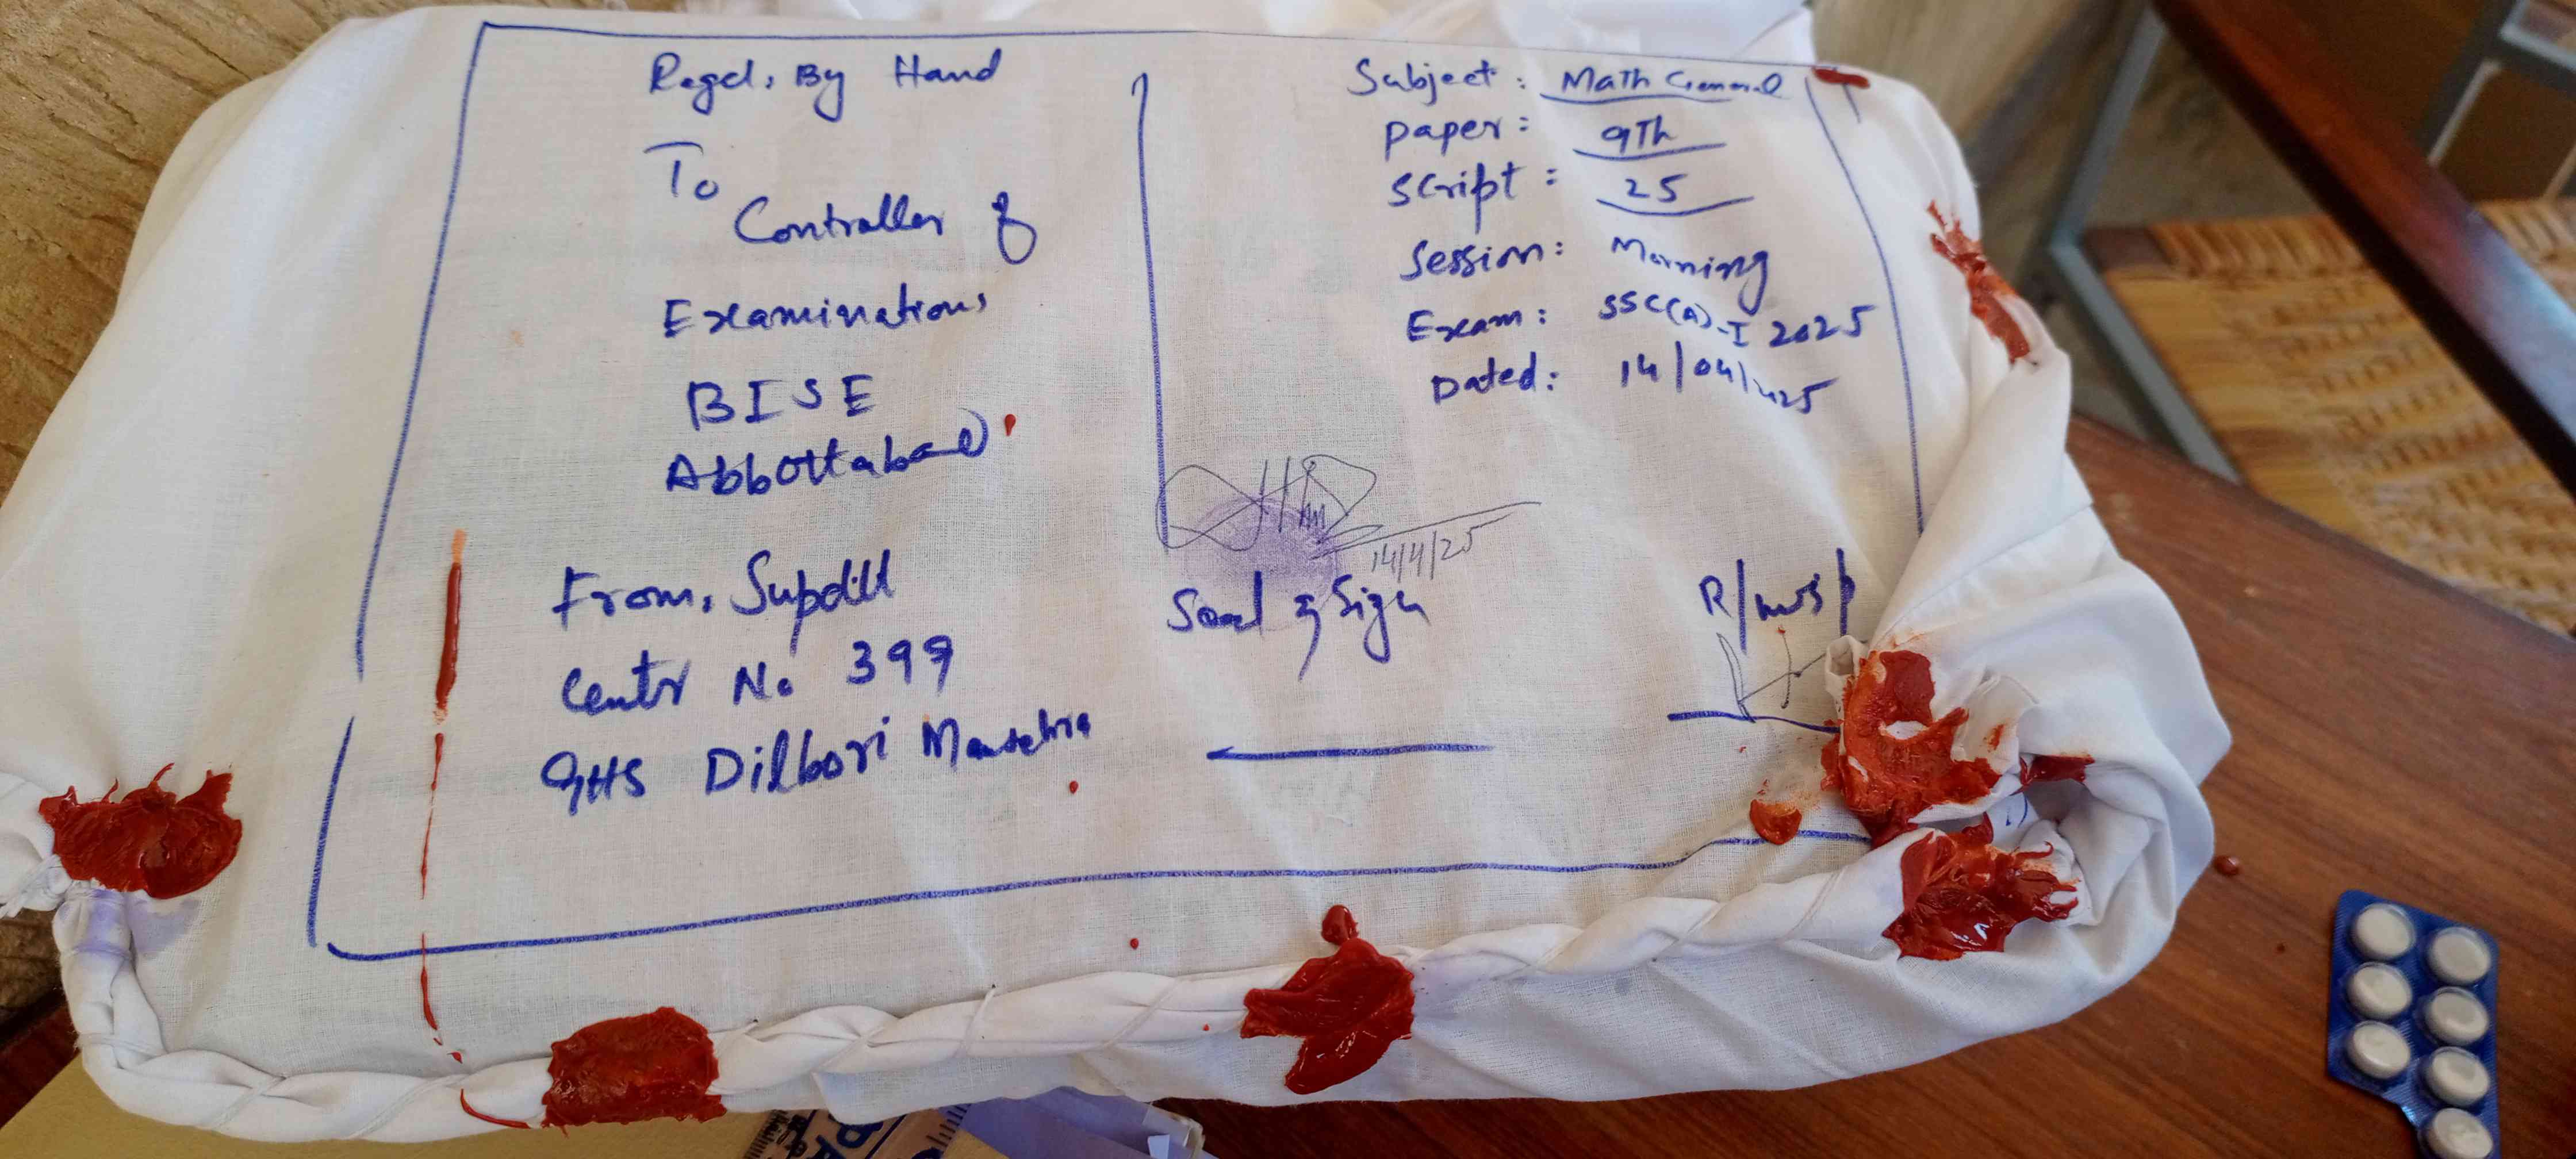 Regd, By Hand
To
Controller of
Examinations
BISE
Abbottabad
From, Supdtt
Centr No 399
GHS Dilbori Mansehra
Subject: Math General
Paper: 9Th
Script: 25
Session: Morning
Exam: SSC(A)-I 2025
Dated: 14/04/2025
14/4/25
Seal & Sign